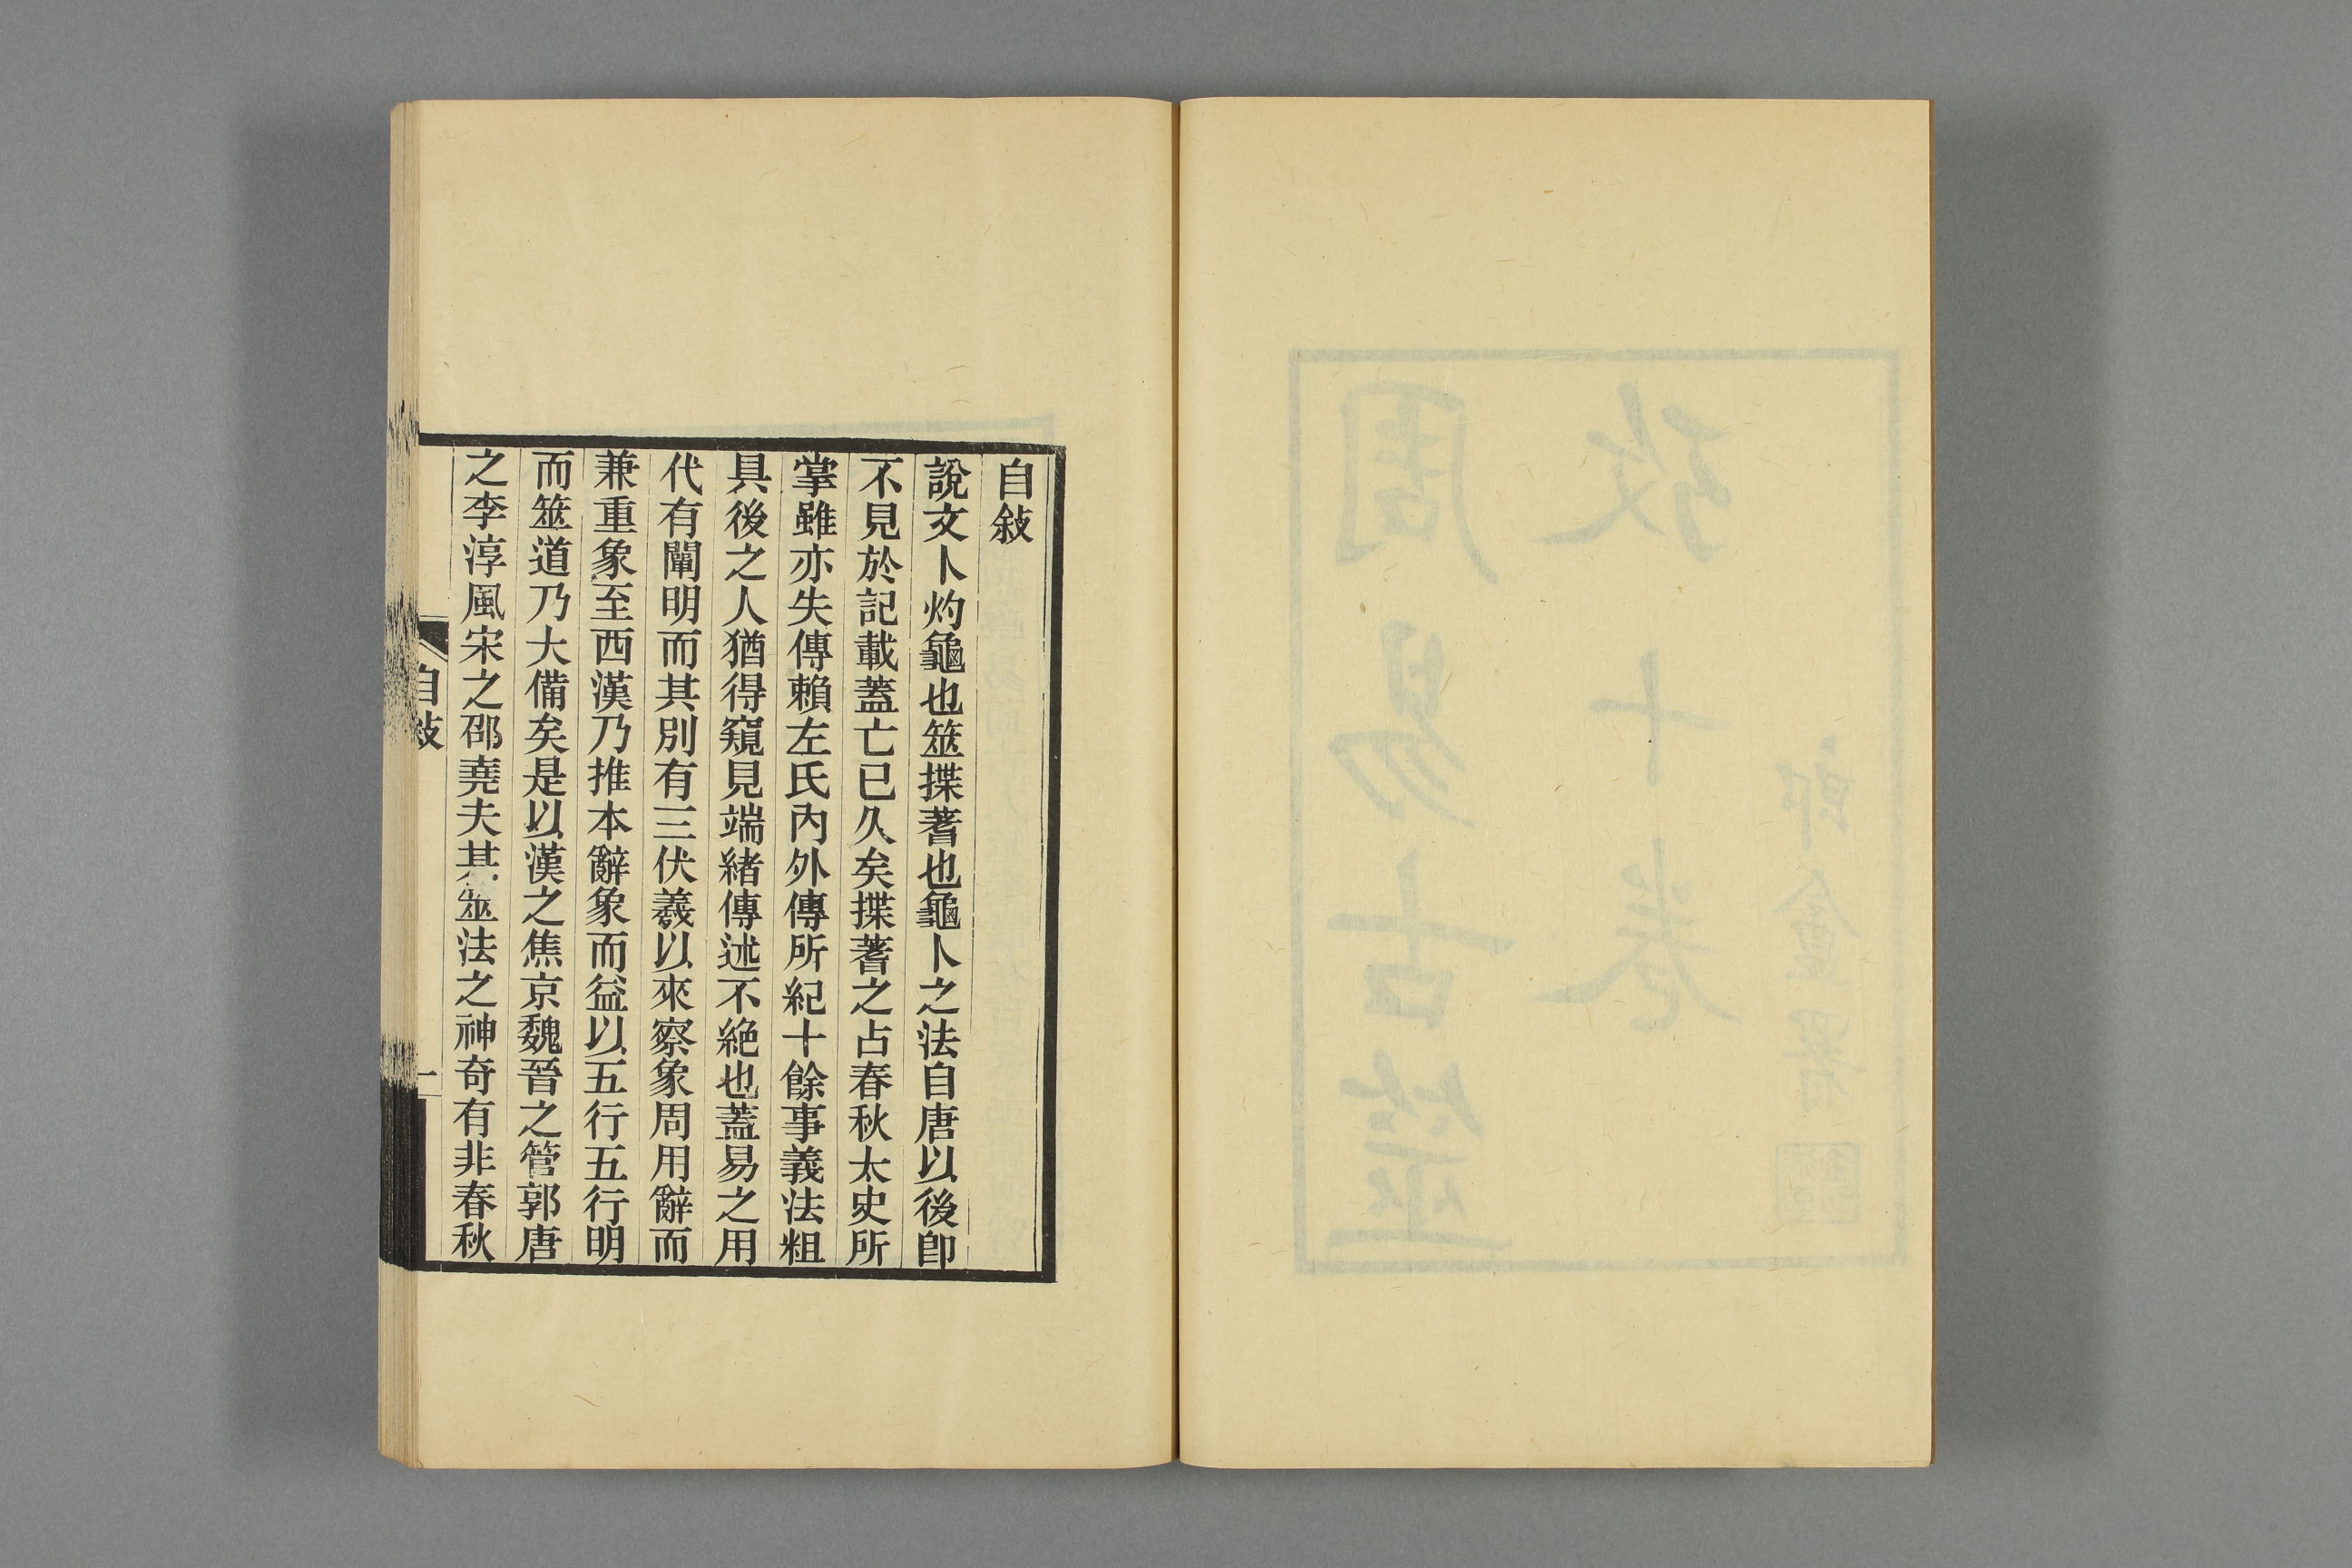 周易古筮
攷十卷
自敍
說文卜灼龜也筮揲蓍也龜卜之法自唐以後卽
不見於記載蓋亡已久矣揲蓍之占春秋太史所
掌雖亦失傳賴左氏內外傳所紀十餘事義法粗
具後之人猶得窺見端緒傳述不絶也蓋易之用
代有闡明而其別有三伏羲以來察象周用辭而
兼重象至西漢乃推本辭象而益以五行五行明
而筮道乃大備矣是以漢之焦京魏晉之管郭唐
之李淳風宋之邵堯夫其筮法之神奇有非春秋
自敍
一